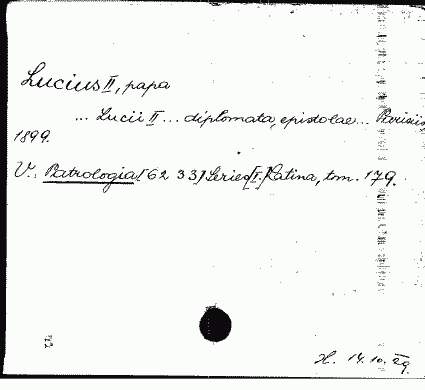 Lucius II, papa
... Lucii II ... diplomata, epistolae ... Parisiis
1899.
V. Patrologia [62 33] Series [I.] Latina, tom. 179.
14.10.29.